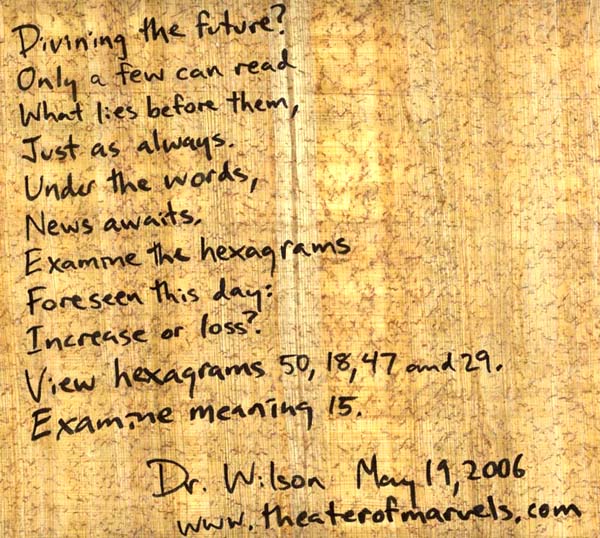 Divining the future?
Only a few can read
What lies before them,
Just as always.
Under the words,
News awaits.
Examine the hexagrams
Foreseen this day:
Increase or loss?
View hexagrams 50, 18, 47 and 29.
Examine meaning 15.
Dr. Wilson May 19, 2006
www.theaterofmarvels.com